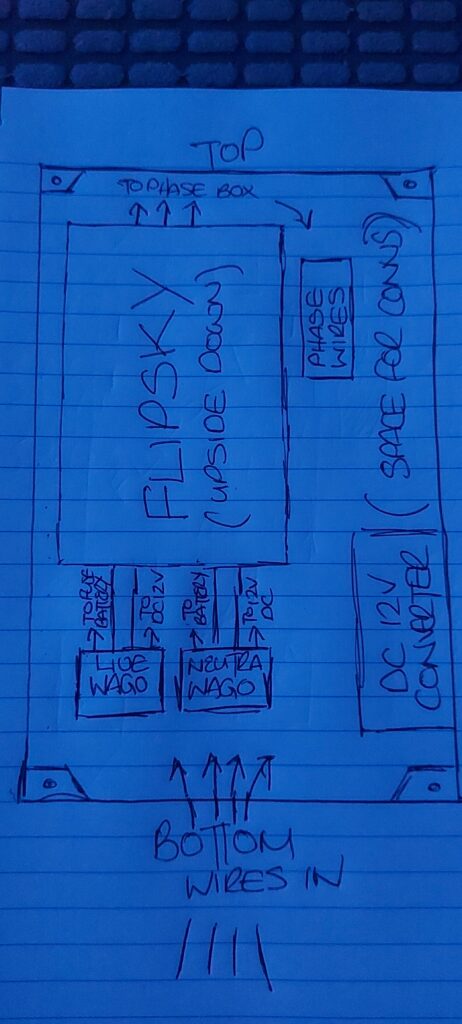 TOP
TO PHASE BOX
FLIPSKY
(UPSIDE DOWN)
PHASE
WIRES
(SPACE FOR CONNS)
TO FUSE
BATTERY
TO
DC 12V
TO
BATTERY
TO 12V
DC
LIVE
WAGO
NEUTRA
WAGO
DC 12V
CONVERTER
BOTTOM
WIRES IN